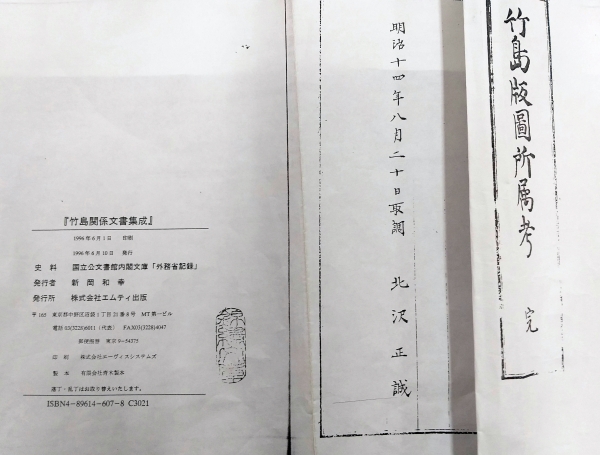 竹島版圖所属考 完
明治十四年八月二十日取調 北沢正誠
『竹島関係文書集成』
1996年6月1日 印刷
1996年6月10日 発行
史料 国立公文書館内閣文庫「外務省記録」
発行者 新岡和幸
発行所 株式会社エムティ出版
〒165 東京都中野区沼袋1丁目21番8号 MT第一ビル
電話 03(3228)6011(代表) FAX03(3228)4047
郵便振替 東京9-54375
印刷 株式会社エーヴィスシステムズ
製本 有限会社青木製本
落丁・乱丁はお取り替えいたします。
ISBN4-89614-607-8 C3021